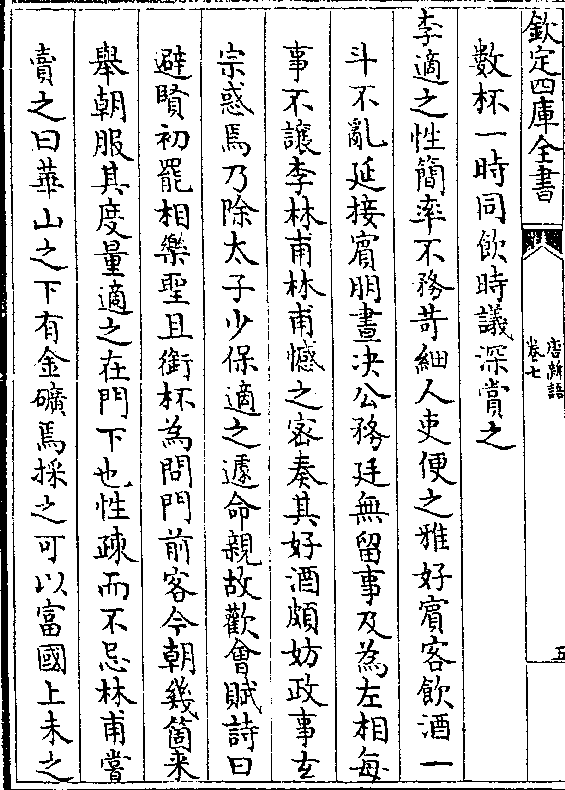 欽定四庫全書
唐新語
卷七
五
數杯一時同飲時議深賞之
李適之性簡率不務苛細人吏便之雅好賓客飲酒一
斗不亂延接賓朋晝决公務廷無留事及為左相每
事不讓李林甫林甫憾之密奏其好酒頗妨政事玄
宗惑焉乃除太子少保適之遽命親故歡會賦詩曰
避賢初罷相樂聖且銜杯為問門前客今朝幾箇来
舉朝服其度量適之在門下也性疎而不忌林甫嘗
賣之曰華山之下有金礦焉採之可以富國上未之